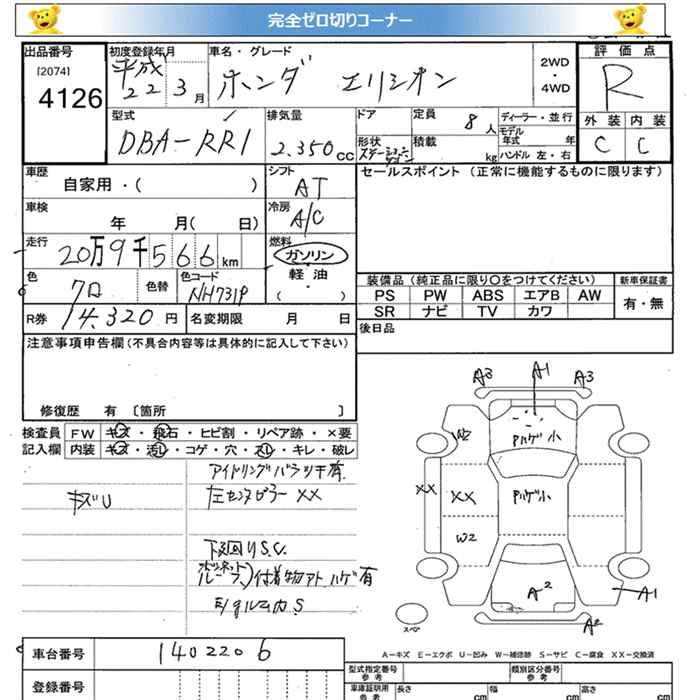 完全ゼロ切りコーナー
出品番号 初度登録年月 車名・グレード 2WD・4WD 評価点
[2074] 平成22 3月 ホンダ エリシオン R
4126
型式 排気量 ドア 定員 ディーラー・並行 外装 内装
DBA-RR1 2.350cc 8人 モデル年式 年 C C
形状 積載 kg ハンドル 左・右
車歴 シフト セールスポイント (正常に機能するものに限ります)
自家用・( ) AT
車検 冷房
年 月( 日) A/C
走行 燃料
20万9千566km ガソリン
軽油
( )
色 色替 色コード 装備品 (純正品に限り○をつけてください) 新車保証書
クロ NH731P PS PW ABS エアB AW 有・無
SR ナビ TV カワ
R券 14.320円 名変期限 月 日 後日品
注意事項申告欄(不具合内容等は具体的に記入して下さい)
修復歴 有 [箇所 ]
検査員 FW キズ・飛石・ヒビ割・リペア跡・×要
記入欄 内装 キズ・汚レ・コゲ・穴・スレ・キレ・破レ
アイドリングバラツキ有
キズU 左センタピラーXX
下廻りS.C.
ルーフ)付着物アト ハゲ有
A3 A1 A3
W2 Pハゲ小
XX XX Pハゲ小
W2
A2 A1
A2
スペア
A-キズ E-エクボ U-凹み W-補修跡 S-サビ C-腐食 XX-交換済
車台番号 1402206 型式指定番号 参考 類別区分番号 参考
登録番号 車庫証明用 参考 長さ cm 幅 cm 高さ cm